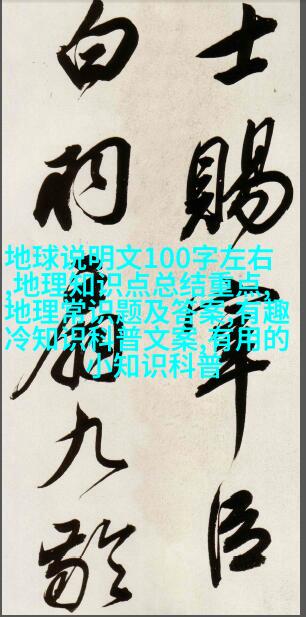 士賜宰臣
白羽扇九齡
地球说明文100字左右
,地理知识点总结重点,
地理常识题及答案,有趣
冷知识科普文案,有用的
小知识科普